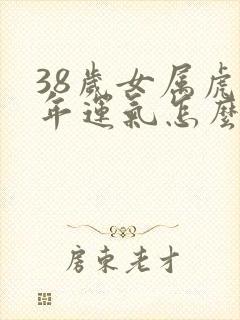 38歲女属虎
年運氣怎麼
房東老才